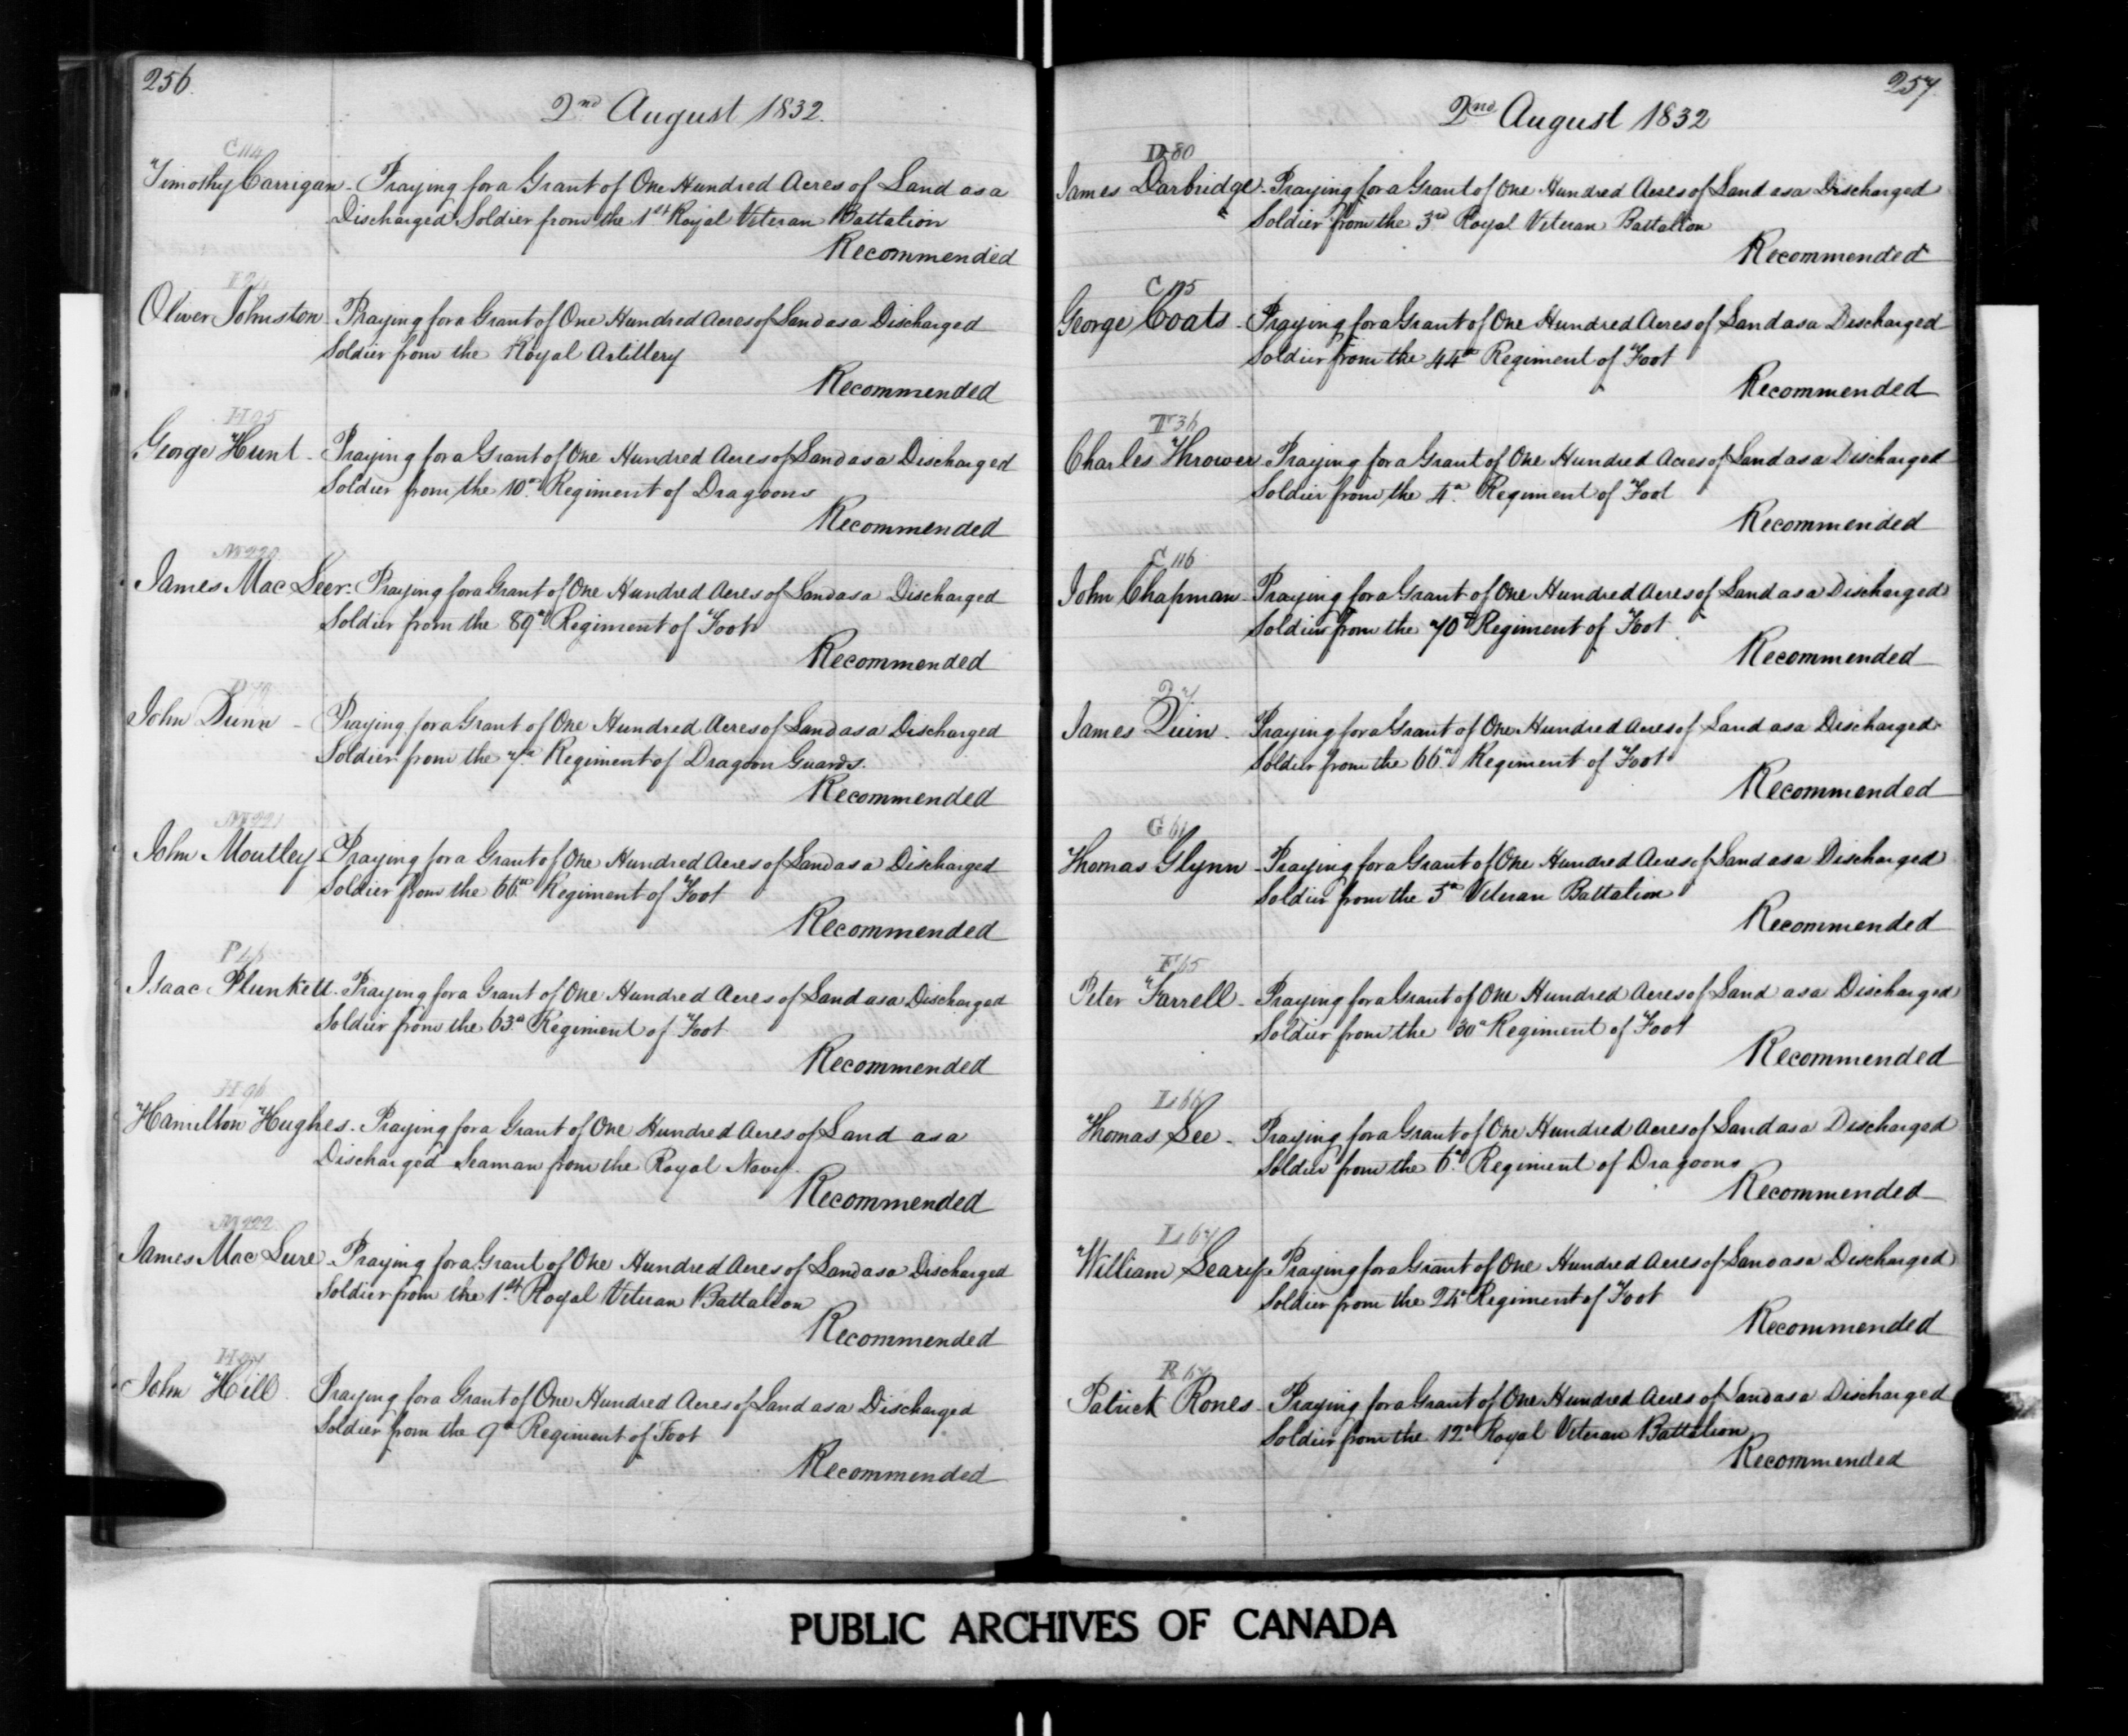 256.
2nd August 1832.
C 114
Timothy Carrigan - Praying for a Grant of One Hundred Acres of Land as a
Discharged Soldier from the 1st Royal Veteran Battalion
Recommended
Oliver Johnston - Praying for a Grant of One Hundred Acres of Land as a Discharged
Soldier from the Royal Artillery
Recommended
H 95
George Hunt - Praying for a Grant of One Hundred Acres of Land as a Discharged
Soldier from the 10th Regiment of Dragoons
Recommended
M 220
James Mac Leer - Praying for a Grant of One Hundred Acres of Land as a Discharged
Soldier from the 89th Regiment of Foot
Recommended
D 79
John Dunn - Praying for a Grant of One Hundred Acres of Land as a Discharged
Soldier from the 7th Regiment of Dragoon Guards.
Recommended
M 221
John Moutley - Praying for a Grant of One Hundred Acres of Land as a Discharged
Soldier from the 66th Regiment of Foot
Recommended
Isaac Plunkett - Praying for a Grant of One Hundred Acres of Land as a Discharged
Soldier from the 63rd Regiment of Foot
Recommended
H 96
Hamilton Hughes - Praying for a Grant of One Hundred Acres of Land as a
Discharged Seaman from the Royal Navy.
Recommended
M 222
James Mac Lure - Praying for a Grant of One Hundred Acres of Land as a Discharged
Soldier from the 1st Royal Veteran Battalion
Recommended
H 97
John Hill. Praying for a Grant of One Hundred Acres of Land as a Discharged
Soldier from the 9th Regiment of Foot
Recommended
257
2nd August 1832
D 80
James Darbridge - Praying for a Grant of One Hundred Acres of Land as a Discharged
Soldier from the 3rd Royal Veteran Battalion
Recommended
C 115
George Coats - Praying for a Grant of One Hundred Acres of Land as a Discharged
Soldier from the 44th Regiment of Foot
Recommended
T 36
Charles Thrower - Praying for a Grant of One Hundred Acres of Land as a Discharged
Soldier from the 4th Regiment of Foot
Recommended
C 116
John Chapman - Praying for a Grant of One Hundred Acres of Land as a Discharged
Soldier from the 70th Regiment of Foot
Recommended
Q 7
James Quin. Praying for a Grant of One Hundred Acres of Land as a Discharged
Soldier from the 66th Regiment of Foot
Recommended
G 61
Thomas Glynn - Praying for a Grant of One Hundred Acres of Land as a Discharged
Soldier from the 5th Veteran Battalion
Recommended
F 65
Peter Farrell - Praying for a Grant of One Hundred Acres of Land as a Discharged
Soldier from the 30th Regiment of Foot
Recommended
L 66
Thomas Lee - Praying for a Grant of One Hundred Acres of Land as a Discharged
Soldier from the 6th Regiment of Dragoons
Recommended
L 67
William Leary - Praying for a Grant of One Hundred Acres of Land as a Discharged
Soldier from the 24th Regiment of Foot
Recommended
R 67
Patrick Rones - Praying for a Grant of One Hundred Acres of Land as a Discharged
Soldier from the 12th Royal Veteran Battalion
Recommended
PUBLIC ARCHIVES OF CANADA